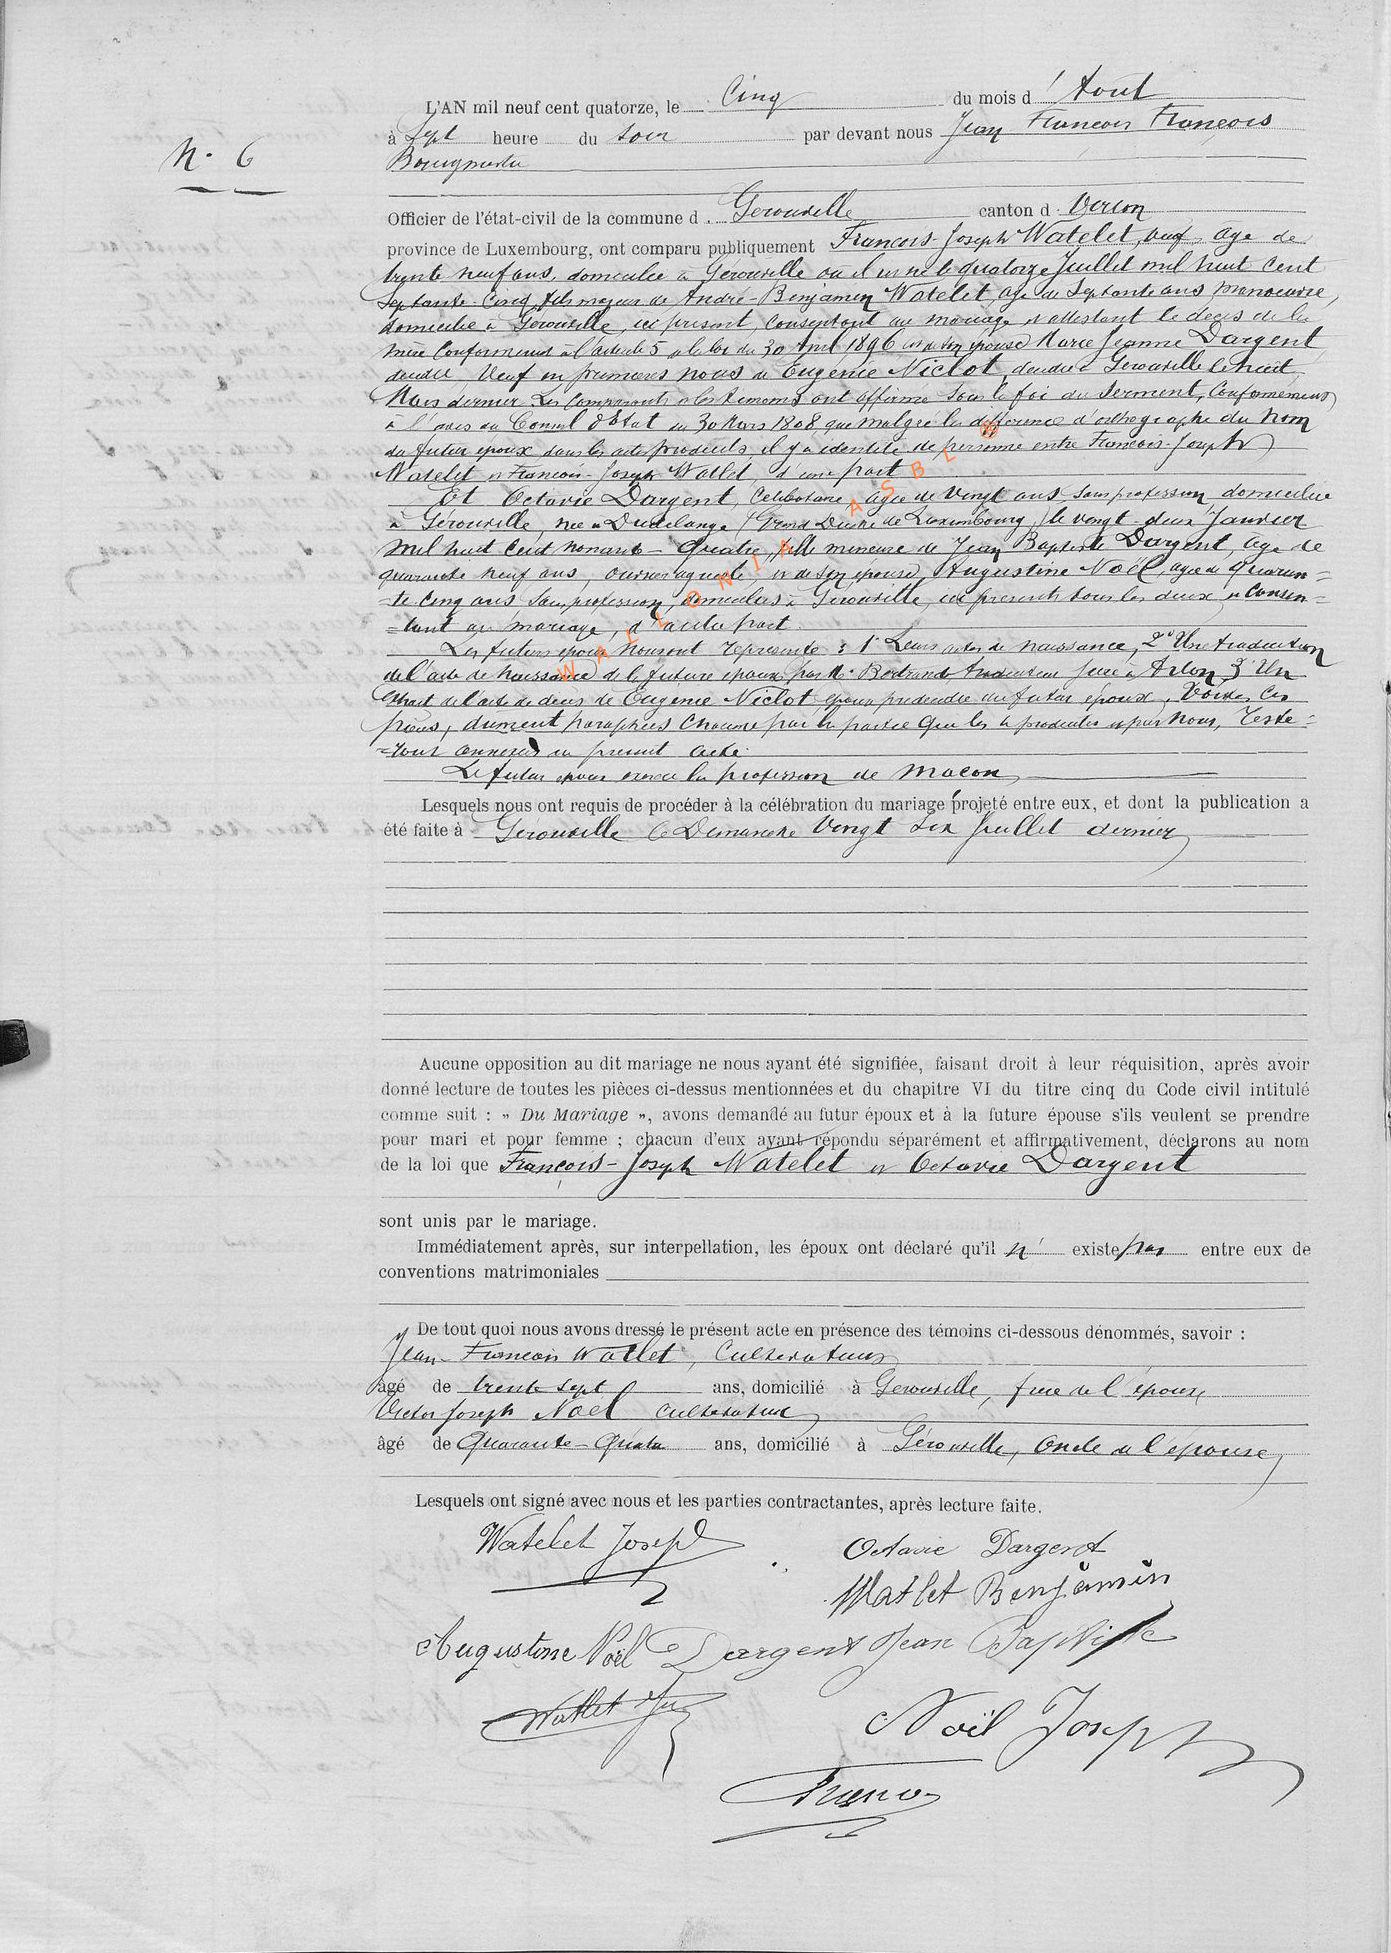 N. 6
L'AN mil neuf cent quatorze, le Cinq du mois d'Août
à Sept heure du Soir par devant nous Jean François François
Bourgmestre
Officier de l'état-civil de la commune d. Gerouville canton d. Virton
province de Luxembourg, ont comparu publiquement François-Joseph Watelet, veuf, âge de
trente neuf ans, domicilie à Gérouville où il est né le quatorze Juillet mil huit cent
Septante-Cinq, fils majeur de André-Benjamin Watelet, age de Septante ans, manoeuvre,
domicilie à Gérouville, ici present, Consentant au mariage et attestant le deces de la
mère Conformement à l'article 5 de la loi du 30 Avril 1896 et de son épouse Marie Jeanne Dargent,
décédée, Veuf en premieres noces de Eugenie Niclot, décédée à Gerouville le huit
Mars dernier. Les Comparants et les témoins ont affirmé Sous la foi du Serment, Conformement
à l'avis du Conseil d'Etat du 30 Mars 1808, que malgré la difference d'orthographe du Nom
du futur époux dans les actes produits, il y a identité de personne entre François-Joseph
Watelet et François-Joseph Watlet, d'une part
Et Octavie Dargent, Celibataire, agée de Vingt ans, Sans profession, domiciliée
à Gérouville, née à Dudelange (Grand Duché de Luxembourg) le vingt-deux Janvier
Mil huit Cent Nonante-Quatre, fille mineure de Jean Baptiste Dargent, age de
quarante neuf ans, ouvrier agricole, et de son epouse, Augustine Noël, agée de Quaran=
=te Cinq ans Sans profession, domiciliés à Gérouville, ici présents tous les deux et Consen=
=tant au mariage, d'autre part.
Les futurs époux nous ont représenté : 1° Leurs actes de naissance, 2° Une traduction
de l'acte de naissance de la future épouse, par Mr Bertrand traducteur Juré à Arlon, 3° Un
extrait de l'acte de deces de Eugenie Niclot épouse précédente du futur époux. Toutes Ces
pièces, dument paraphées Chacune par la partie Qui les a produites et par Nous, reste=
=ront annexées au present acte.
Le futur époux exerce la profession de Macon
Lesquels nous ont requis de procéder à la célébration du mariage projeté entre eux, et dont la publication a
été faite à Gérouville le Dimanche Vingt Six Juillet dernier
Aucune opposition au dit mariage ne nous ayant été signifiée, faisant droit à leur réquisition, après avoir
donné lecture de toutes les pièces ci-dessus mentionnées et du chapitre VI du titre cinq du Code civil intitulé
comme suit : » Du Mariage «, avons demandé au futur époux et à la future épouse s'ils veulent se prendre
pour mari et pour femme ; chacun d'eux ayant répondu séparément et affirmativement, déclarons au nom
de la loi que François-Joseph Watelet et Octavie Dargent
sont unis par le mariage.
Immédiatement après, sur interpellation, les époux ont déclaré qu'il n' existe pas entre eux de
conventions matrimoniales
De tout quoi nous avons dressé le présent acte en présence des témoins ci-dessous dénommés, savoir :
Jean-François Watlet, Cultivateur
âgé de trente sept ans, domicilié à Gerouville, frère de l'époux
Victor Joseph Noël Cultivateur
âgé de Quarante-Quatre ans, domicilié à Gérouville, Oncle de l'épouse
Lesquels ont signé avec nous et les parties contractantes, après lecture faite.
Watelet Joseph
Octavie Dargent
Watlet Benjamin
Augustine Noël Dargent Jean Baptiste
Watlet
Noël Joseph
WALLONIA ASBL